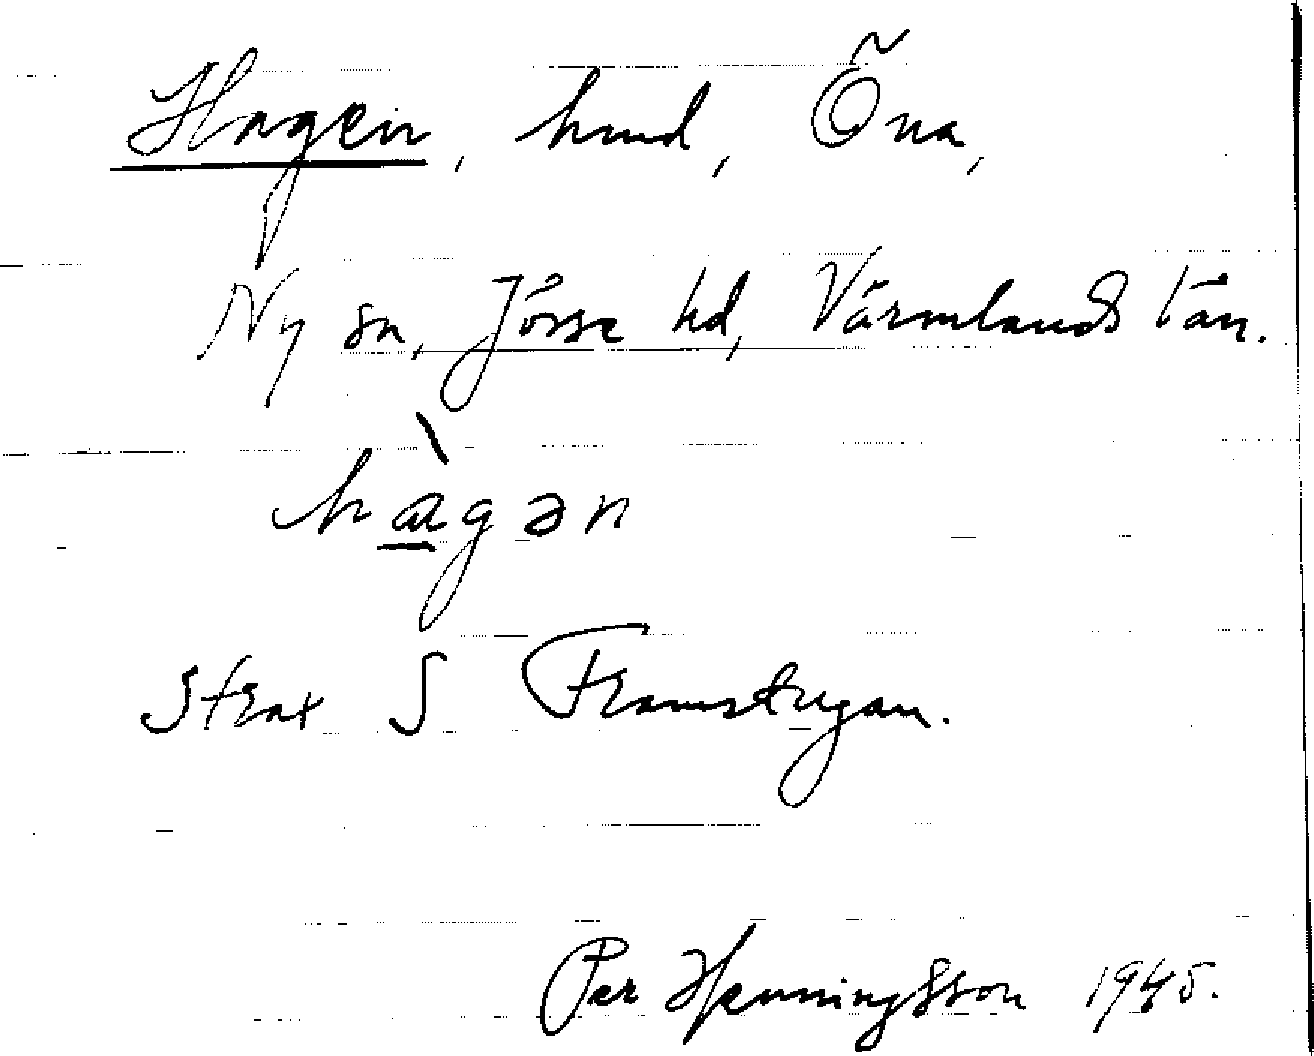 Hagen, hmd, Öna,
Ny sn, Jösse hd, Värmlands län.
hàgən
Strax S Framstugan.
Per Henningsson 1945.